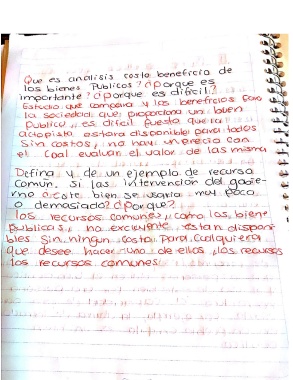 Que es analisis costo beneficio de
los bienes Publicos? ¿Porque es
importante? ¿Porque es dificil?
Estudio que compara y los beneficios para
la sociedad que proporciona un buen
Publico, es dificil puesto que la
actopista estara disponible para todos
Sin costos, no hay un precio con
el Coal evaluan el valor de las misma
Defina y de un ejemplo de recurso
Comun. Si las intervencion del gobie-
rno a este bien se usaria muy poco
o demasiado? ¿Porque?
los recursos comunes, como los biene
publicos, no excluyente estan disponi-
bles Sin ningun costo para cualquiera
que desee hacer uno de ellos, los recursos
los recursos comunes